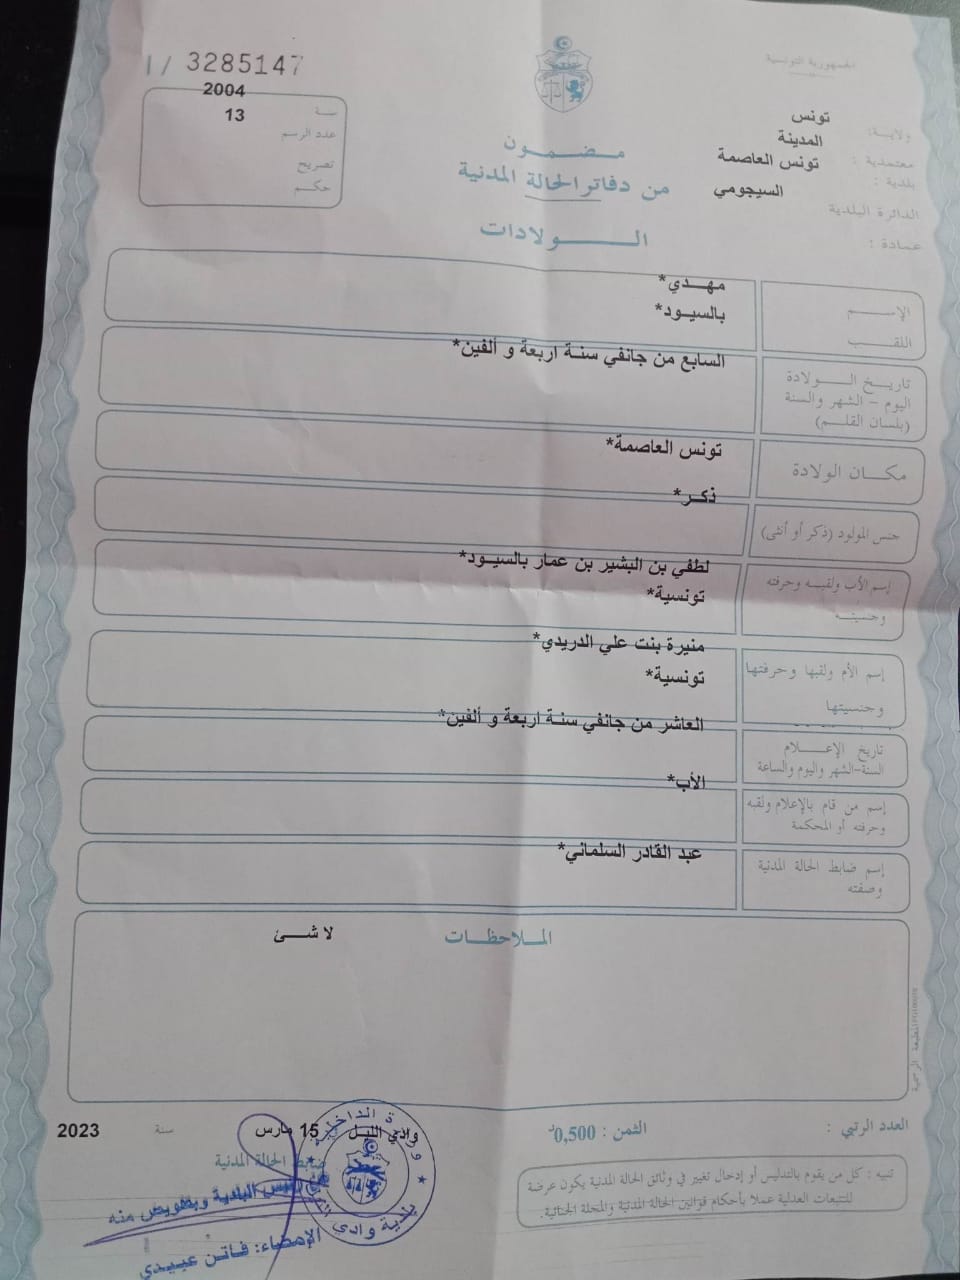 الجمهورية التونسية
ولاية: تونس
معتمدية : المدينة
بلدية : تونس العاصمة
الدائرة البلدية السيجومي
عمادة :
3285147 / I
سنة 2004
عدد الرسم 13
تصريح
حكم
مضمون
من دفاتر الحالة المدنية
الولادات
الإسم مهدي*
اللقب بالسيود*
تاريخ الولادة
اليوم - الشهر والسنة
(بلسان القلم)
السابع من جانفي سنة اربعة و ألفين*
مكان الولادة تونس العاصمة*
جنس المولود (ذكر أو أنثى) ذكر*
إسم الأب ولقبه وحرفته
وجنسيته
لطفي بن البشير بن عمار بالسيود*
تونسية*
إسم الأم ولقبها وحرفتها
وجنسيتها
منيرة بنت علي الدريدي*
تونسية*
تاريخ الإعلام
السنة-الشهر واليوم والساعة
العاشر من جانفي سنة اربعة و ألفين*
إسم من قام بالإعلام ولقبه
وحرفته أو المحكمة
الأب*
إسم ضابط الحالة المدنية
وصفته
عبد القادر السلماني*
الملاحظات
لا شئ
المطبعة الرسمية
العدد الرتبي :
الثمن : 0,500د
وادي الليل 15 مارس سنة 2023
ضابط الحالة المدنية
تنبيه : كل من يقوم بالتدليس أو إدخال تغيير في وثائق الحالة المدنية يكون عرضة
للتتبعات العدلية عملا بأحكام قوانين الحالة المدنية والمجلة الجنائية.
وزارة الداخلية
بلدية وادي الليل
عن رئيس البلدية وبتفويض منه
الإمضاء: فاتن عبيدي